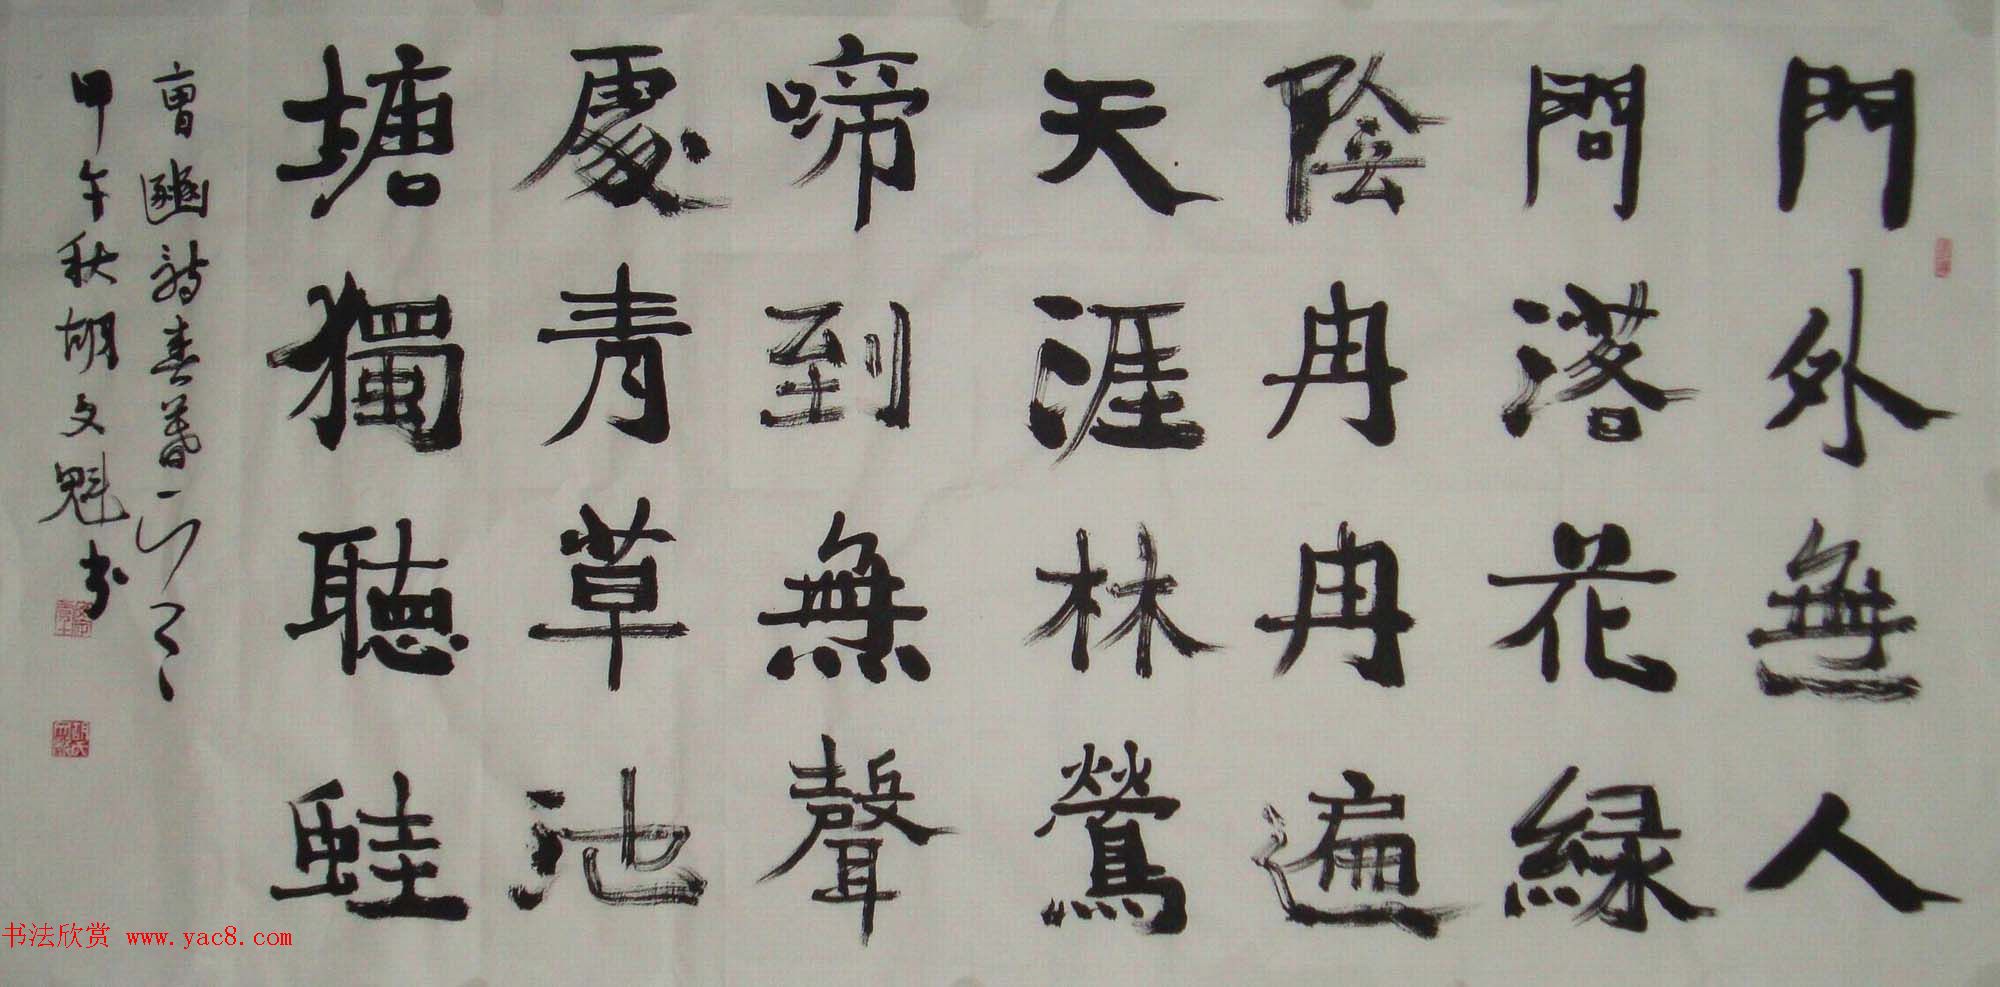 門外無人
問落花緑
陰冉冉遍
天涯林鶯
啼到無聲
處青草池
塘獨聽蛙
曹豳詩春暮一
甲午秋胡文魁书
书法欣赏 www.yac8.com